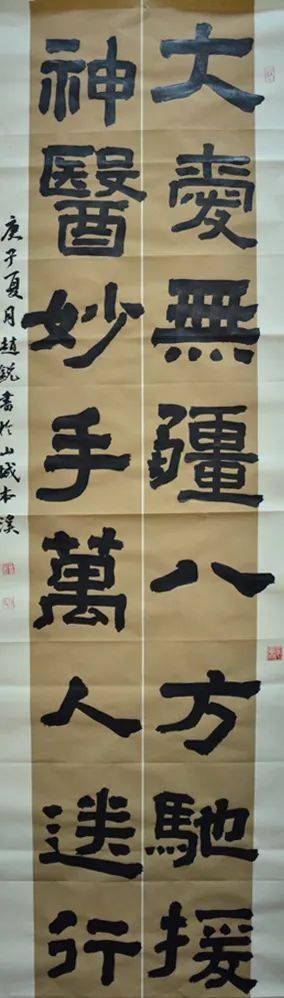 大愛無疆八方馳援
神醫妙手萬人送行
庚子夏月趙銳書於山城本溪